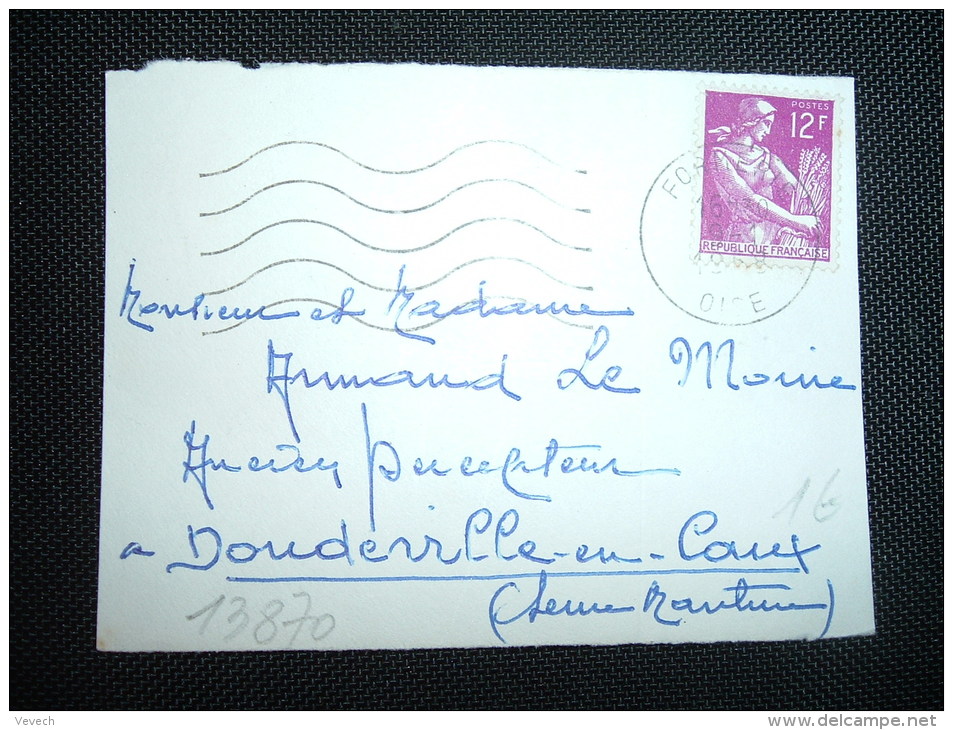 POSTES
12F
REPUBLIQUE FRANÇAISE
OISE
Monsieur et Madame
Armand Le Moine
Ancien Percepteur
a Doudeville-en-Caux
(Seine Maritime)
16
13870
Vevech
delcampe.net